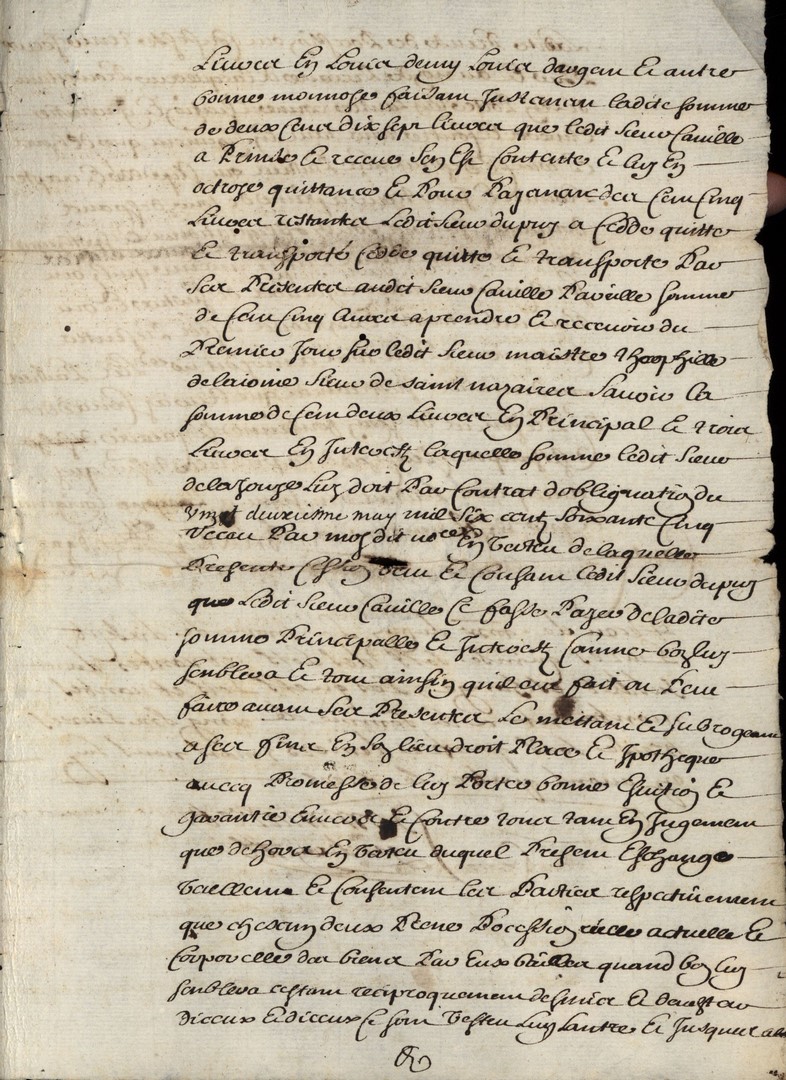 Livres En Louis demy Louis dargan Et autre
bonne monnoye faisant Justement ladite somme
de deux Cens dix sept livres que ledit Sieur Caville
a Prinse Et receue Sen Est Contanté Et luy En
octroye quittance Et Pour Payement des Cent Cinq
Livres restantes Ledit Sieur dupuy a Ceddé quitté
Et transporté Cedde quitte Et transporte Par
Ses Presentes audit Sieur Caville Pareille somme
de Cent Cinq livres a prendre Et recevoir du
Premier Jour sur ledit Sieur maistre theophille
de Sieur de saint nazaires Savoir la
somme de Cent deux Livres En Principal Et trois
Livres En Interestz laquelle somme ledit Sieur
Luy doit Par Contrat dobligation du
vingt deuxiesme may mil six centz soixante Cinq
receu Par moy dit nore En vertu de laquelle
Presente Cession veut Et Consant ledit Sieur dupuy
que Ledit Sieur Caville Ce fasse Payer de ladite
somme Principalle Et Interestz Comme bon luy
semblera Et tout ainsin quil eut fait ou Peu
faire avant Ses Presentes Le mettant Et Subrogeant
a ses fins En Son lieu droit Place Et Ipotheque
avecq Promesse de luy Porter bonne Esvition Et
garantie Envers Et Contre tous tant En Jugement
que dehors En vertu duquel Present Eschange
veullent Et Consentent les Parties respativement
que chescun deux Prene Pocession réelle actuelle Et
Corporelle des biens Par Eux bailles quand bon luy
semblera cestant reciproquement desmis Et
diceux Et diceux Ce sont vesteu Lun Lautre Et Jusques a